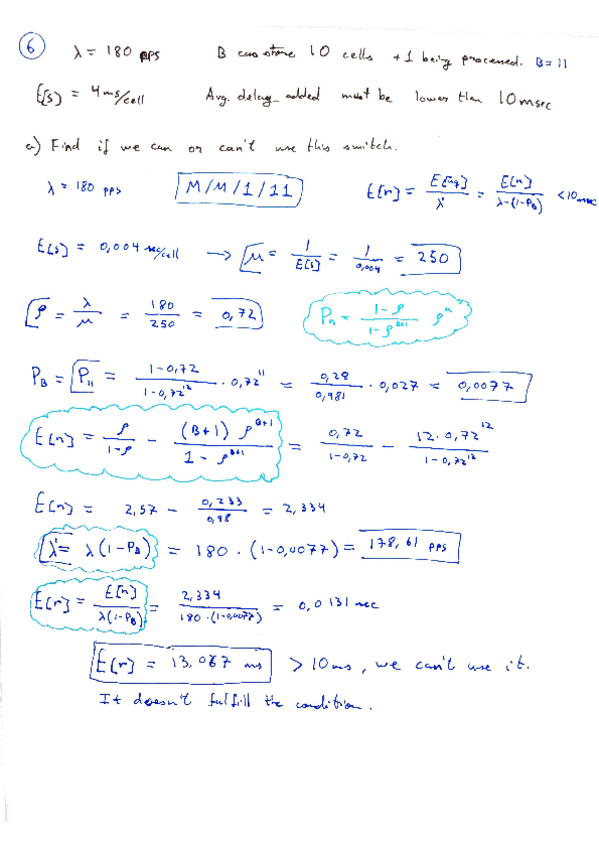 6 λ = 180 pps B can store 10 cells + 1 being processed. B = 11
E[s] = 4 ms/cell Avg. delay added must be lower than 10 msec
a) Find if we can or can't use this switch.
λ = 180 pps M/M/1/11 E[r] = E[nq]/λ' = E[n]/λ-(1-P_B) < 10 msec
E[s] = 0,004 sec/cell → μ = 1/E[s] = 1/0,004 = 250
ρ = λ/μ = 180/250 = 0,72 P_n = (1-ρ)/(1-ρ^(B+1)) ρ^n
P_B = P_11 = (1-0,72)/(1-0,72^12) · 0,72^11 = 0,28/0,981 · 0,027 = 0,0077
E[n] = ρ/(1-ρ) - ((B+1) ρ^(B+1))/(1-ρ^(B+1)) = 0,72/(1-0,72) - (12·0,72^12)/(1-0,72^12)
E[n] = 2,57 - 0,233/0,98 = 2,334
λ' = λ(1-P_B) = 180 · (1-0,0077) = 178,61 pps
E[r] = E[n]/(λ(1-P_B)) = 2,334/(180·(1-0,0077)) = 0,0131 sec
E[r] = 13,067 ms > 10ms, we can't use it.
It doesn't fulfill the condition.